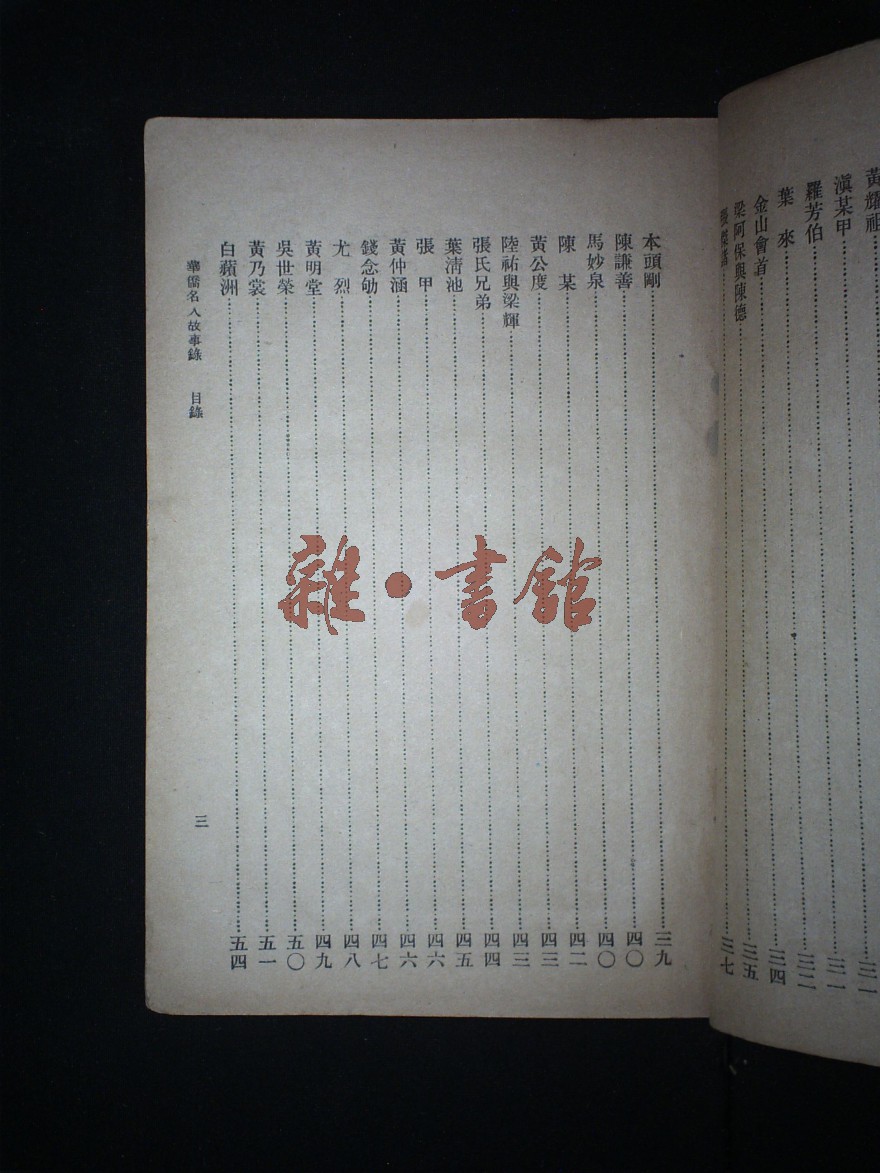 黃耀祖……三一
滇某甲……三一
羅芳伯……三二
葉來……三四
金山會首……三五
梁阿保與陳德……三七
本頭剛……三九
陳謙善……四〇
馬妙泉……四〇
陳某……四二
黃公度……四三
陸祐與梁輝……四三
張氏兄弟……四四
葉清池……四五
張甲……四六
黃仲涵……四六
錢念劬……四七
尤烈……四八
黃明堂……四九
吳世榮……五〇
黃乃裳……五一
白蘋洲……五四
華僑名人故事錄 目錄
三
雜·書館